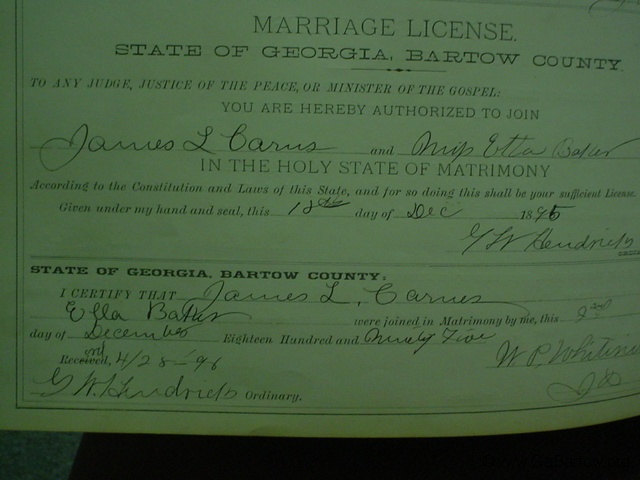 MARRIAGE LICENSE.
STATE OF GEORGIA, BARTOW COUNTY.
TO ANY JUDGE, JUSTICE OF THE PEACE, OR MINISTER OF THE GOSPEL:
YOU ARE HEREBY AUTHORIZED TO JOIN
James L Carns and Miss Etta Baker
IN THE HOLY STATE OF MATRIMONY
According to the Constitution and Laws of this State, and for so doing this shall be your sufficient License.
Given under my hand and seal, this day of Dec 1895
G W Hendricks
STATE OF GEORGIA, BARTOW COUNTY.
I CERTIFY THAT James L. Carnes
Etta Baker were joined in Matrimony by me, this 2nd
day of December Eighteen Hundred and Ninety Five
W. P. Whiteside
Received, 4/28-96
G W Hendricks Ordinary.